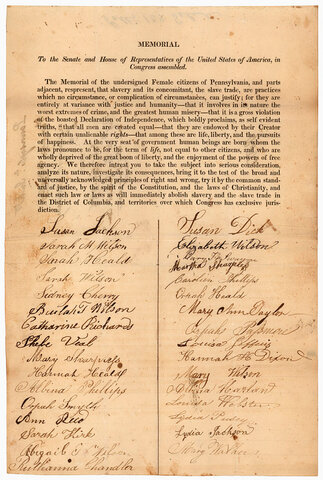 MEMORIAL
To the Senate and House of Representatives of the United States of America, in
Congress assembled.
The Memorial of the undersigned Female citizens of Pennsylvania, and parts
adjacent, represent, that slavery and its concomitant, the slave trade, are practices
which no circumstance, or complication of circumstances, can justify; for they are
entirely at variance with justice and humanity—that it involves in its nature the
worst extremes of crime, and the greatest human misery—that it is a gross violation
of the boasted Declaration of Independence, which boldly proclaims, as self evident
truths, "that all men are created equal—that they are endowed by their Creator
with certain unalienable rights—that among these are life, liberty, and the pursuits
of happiness. At the very seat of government human beings are born whom the
laws pronounce to be, for the term of life, not equal to other citizens, and who are
wholly deprived of the great boon of liberty, and the enjoyment of the powers of free
agency. We therefore intreat you to take the subject into serious consideration,
analyze its nature, investigate its consequences, bring it to the test of the broad and
universally acknowledged principles of right and wrong, try it by the common stand-
ard of justice, by the spirit of the Constitution, and the laws of Christianity, and
enact such law or laws as will immediately abolish slavery and the slave trade in
the District of Columbia, and territories over which Congress has exclusive juris-
diction.
Susan Jackson
Sarah M Wilson
Sarah Heald
Sarah Wilson
Sidney Cherry
Beulah Wilson
Catharine Richards
Phebe Veal
Mary
Hannah Heald
Albina Phillips
Orpah Smyth
Ann Reo
Sarah Kirk
Abigail Wilson
Ruthanna Chandler
Susan Dick
Elizabeth Wilson
Martha Sharpless
Carolien Phillips
Orpah Heald
Mary Ann Taylor
Orpah
Louisa
Hannah H. Dixon
Mary Wilson
Harland
Louisa Webster
Lydia
Lydia Jackson
Mary